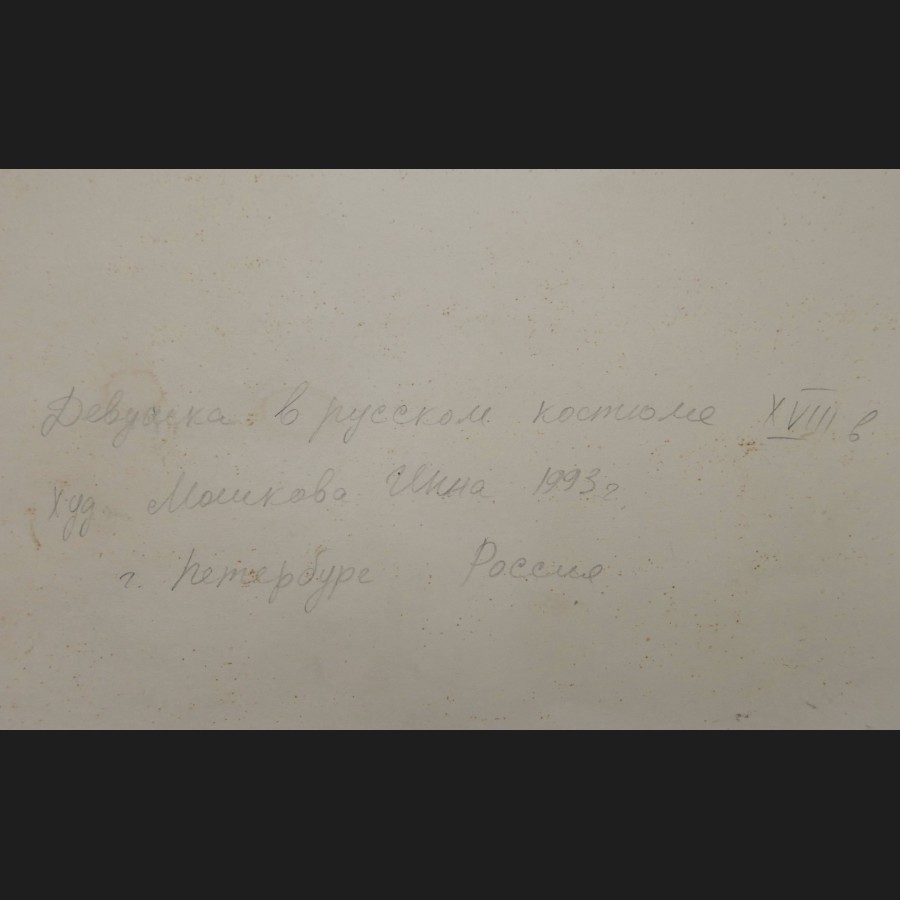 Девушка в русском костюме XVIII в
Худ Мошкова Инна 1993 г
г. Петербург Россия